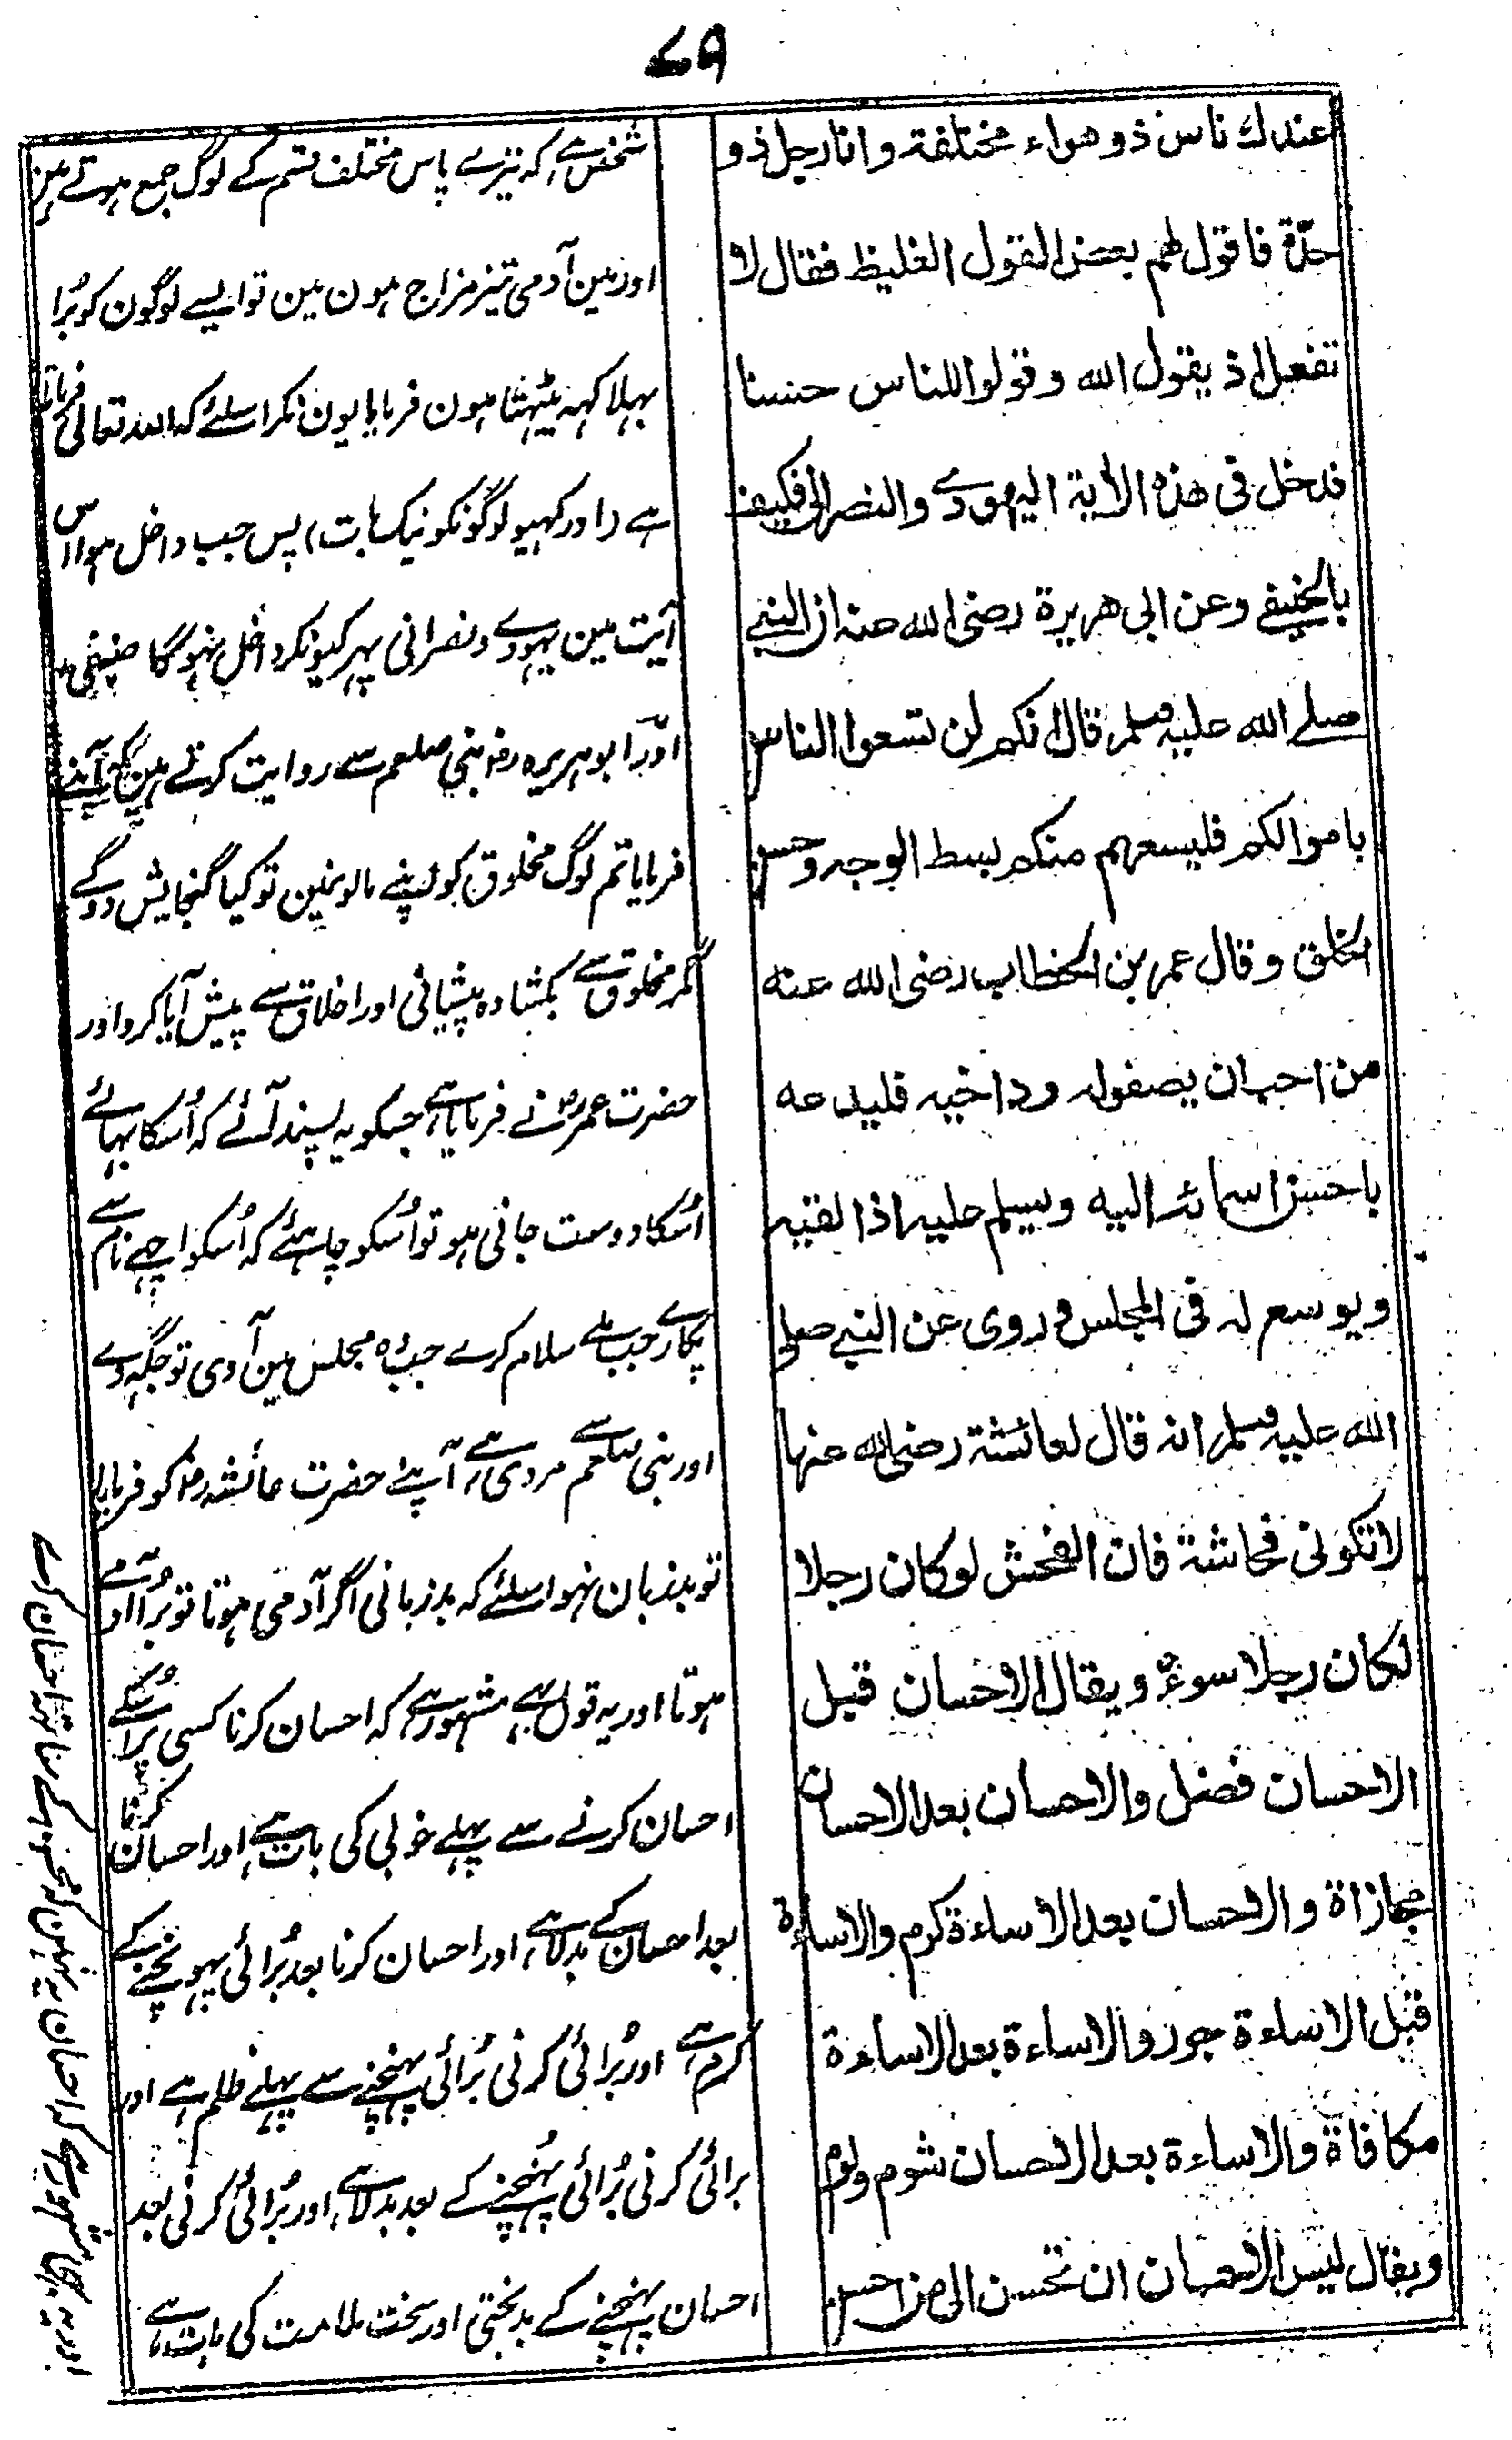 ۷۹
عندك ناس ذو هواء مختلفة وانا رجل ذو
حدّة فاقول لهم بعض القول الغليظ فقال لا
تفعل اذ يقول الله وقولوا للناس حسنا
فدخل في هذه الأية اليهودے والنصرانی فكيف
بالحنيفے وعن ابی هريرة رضی الله عنه ان النبے
صلے الله عليه وسلم قال انكم لن تسعوا الناس
باموالكم فليسعهم منكم بسط الوجه وحسن
الخلق وقال عمر بن الخطاب رضی الله عنه
من احب ان يصفوله ود اخيه فليدعه
باحسن اسمائه اليه ويسلم عليه اذا لقيه
ويوسع له فی المجلس وروی عن النبے صلے
الله عليه وسلم انه قال لعائشة رضی الله عنها
لا تكونی فحاشة فان الفحش لوكان رجلا
لكان رجلا سوءٍ ويقال الاحسان قبل
الاحسان فضل والاحسان بعد الاحسان
مجازاة والاحسان بعد الاساءة كرم والاساءة
قبل الاساءة جور والاساءة بعد الاساءة
مكافاة والاساءة بعد الاحسان شوم ولوم
ويقال ليس الاحسان ان تحسن الی من احسن
شخص ہے کہ تیرے پاس مختلف قسم کے لوگ جمع ہوتے ہین
اور مین آدمی تیز مزاج ہون مین تو ایسے لوگون کو بُرا
بہلا کہہ بیٹہتا ہون فرمایا یون نکر اسلئے کہ اللہ تعالیٰ فرماتا
ہے (اور کہیو لوگونکو نیک بات) پس جب داخل ہوا اس
آیت مین یہودے ونصرانی پہر کیونکر داخل نہوگا حنیفی
اور ابوہریرہ رضہ نبی صلعم سے روایت کرتے ہین کہ آپنے
فرمایا تم لوگ مخلوق کو اپنے مالونمین تو کیا گنجایش دوگے
مگر مخلوق سے بکشادہ پیشانی اور اخلاق سے پیش آیا کرو اور
حضرت عمرؓ نے فرمایا ہے جسکو یہ پسند آئے کہ اُسکا بہائے
اُسکا دوست جانی ہو تو اُسکو چاہئے کہ اُسکو اچہے نام سے
پکارے جب ملے سلام کرے جب وہ مجلس مین آوی تو جگہ دے
اور نبی صلعم سے مروی ہے آپنے حضرت عائشہ رضہ کو فرمایا
تو بدزبان نہو اسلئے کہ بدزبانی اگر آدمی ہوتا تو بُرا آدمے
ہوتا اور یہ قول بہے مشہور ہے کہ احسان کرنا کسی پر اُسکے
احسان کرنے سے پہلے خوبی کی بات ہے اور احسان کرنا
بعد احسان کے بدلا ہے اور احسان کرنا بعد بُرائی پہونچنے کے
کرم ہے اور بُرائی کرنی بُرائی پہنچنے سے پہلے ظلم ہے اور
برائی کرنی بُرائی پہنچنے کے بعد بدلا ہے اور بُرائی کرنی بعد
احسان پہنچنے کے بدبختی اور سخت ملامت کی بات ہے